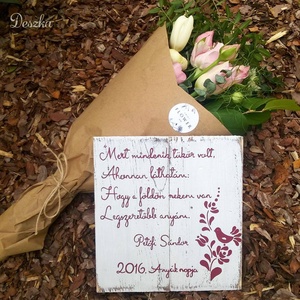 Deszka
Mert mindenik tükör volt,
Ahonnan láthatám:
Hogy a földön nekem van
Legszeretőbb anyám.
Petőfi Sándor
2016. Anyák napja